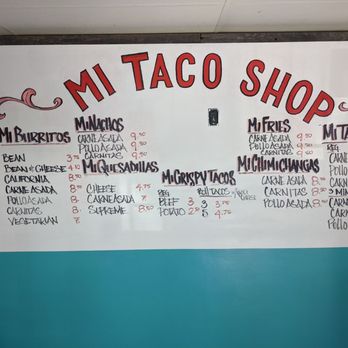 MI TACO SHOP
MI BURRITOS
BEAN 3.75
BEAN & CHEESE
CALIFORNIA 8.50
CARNE ASADA 8.50
POLLO ASADA 8.50
CARNITAS 8.50
VEGETARIAN 7
MI NACHOS
CARNE ASADA 9.50
POLLO ASADA 9.50
CARNITAS 9.50
MI QUESADILLAS
CHEESE 4.75
CARNE ASADA 7
SUPREME 8.50
MI CRISPY TACOS
REG
BEEF 3
POTATO
ROLL TACOS
3 3.75
5
MI FRIES
CARNE ASADA 9.50
POLLO ASADA 9
CARNITAS 9.50
MI CHIMICHANGAS
CARNE ASADA 8.50
CARNITAS 8.50
POLLO ASADA 8.50
MI TA
REG
CARNE
POLLO
CARNI
3 MIN
CARN
CARN
POLLO